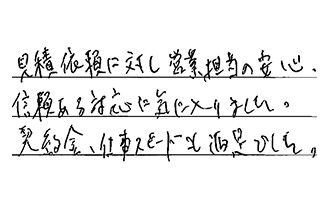 見積依頼に対し営業担当の安心、
信頼ある対応に気に入りました。
契約金、仕事スピードも満足でした。